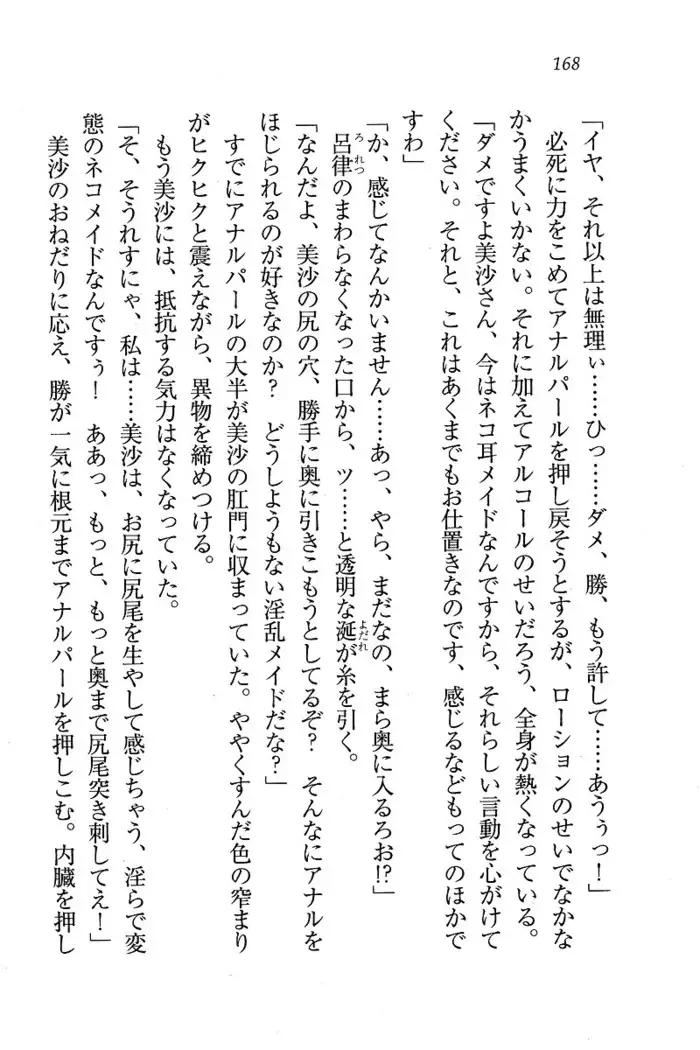 168
「イヤ、それ以上は無理ぃ……ひっ……ダメ、勝、もう許して……あうぅっ！」
　必死に力をこめてアナルパールを押し戻そうとするが、ローションのせいでなかな
かうまくいかない。それに加えてアルコールのせいだろう、全身が熱くなっている。
「ダメですよ美沙さん、今はネコ耳メイドなんですから、それらしい言動を心がけて
ください。それと、これはあくまでもお仕置きなのです、感じるなどもってのほかで
すわ」
「か、感じてなんかいません……あっ、やら、まだなの、まら奥に入るろお!?」
　呂律のまわらなくなった口から、ツ……と透明な涎が糸を引く。
「なんだよ、美沙の尻の穴、勝手に奥に引きこもうとしてるぞ？　そんなにアナルを
ほじられるのが好きなのか？　どうしようもない淫乱メイドだな？」
　すでにアナルパールの大半が美沙の肛門に収まっていた。ややくすんだ色の窄まり
がヒクヒクと震えながら、異物を締めつける。
　もう美沙には、抵抗する気力はなくなっていた。
「そ、そうれすにゃ、私は……美沙は、お尻に尻尾を生やして感じちゃう、淫らで変
態のネコメイドなんですぅ！　ああっ、もっと、もっと奥まで尻尾突き刺してえ！」
　美沙のおねだりに応え、勝が一気に根元までアナルパールを押しこむ。内臓を押し